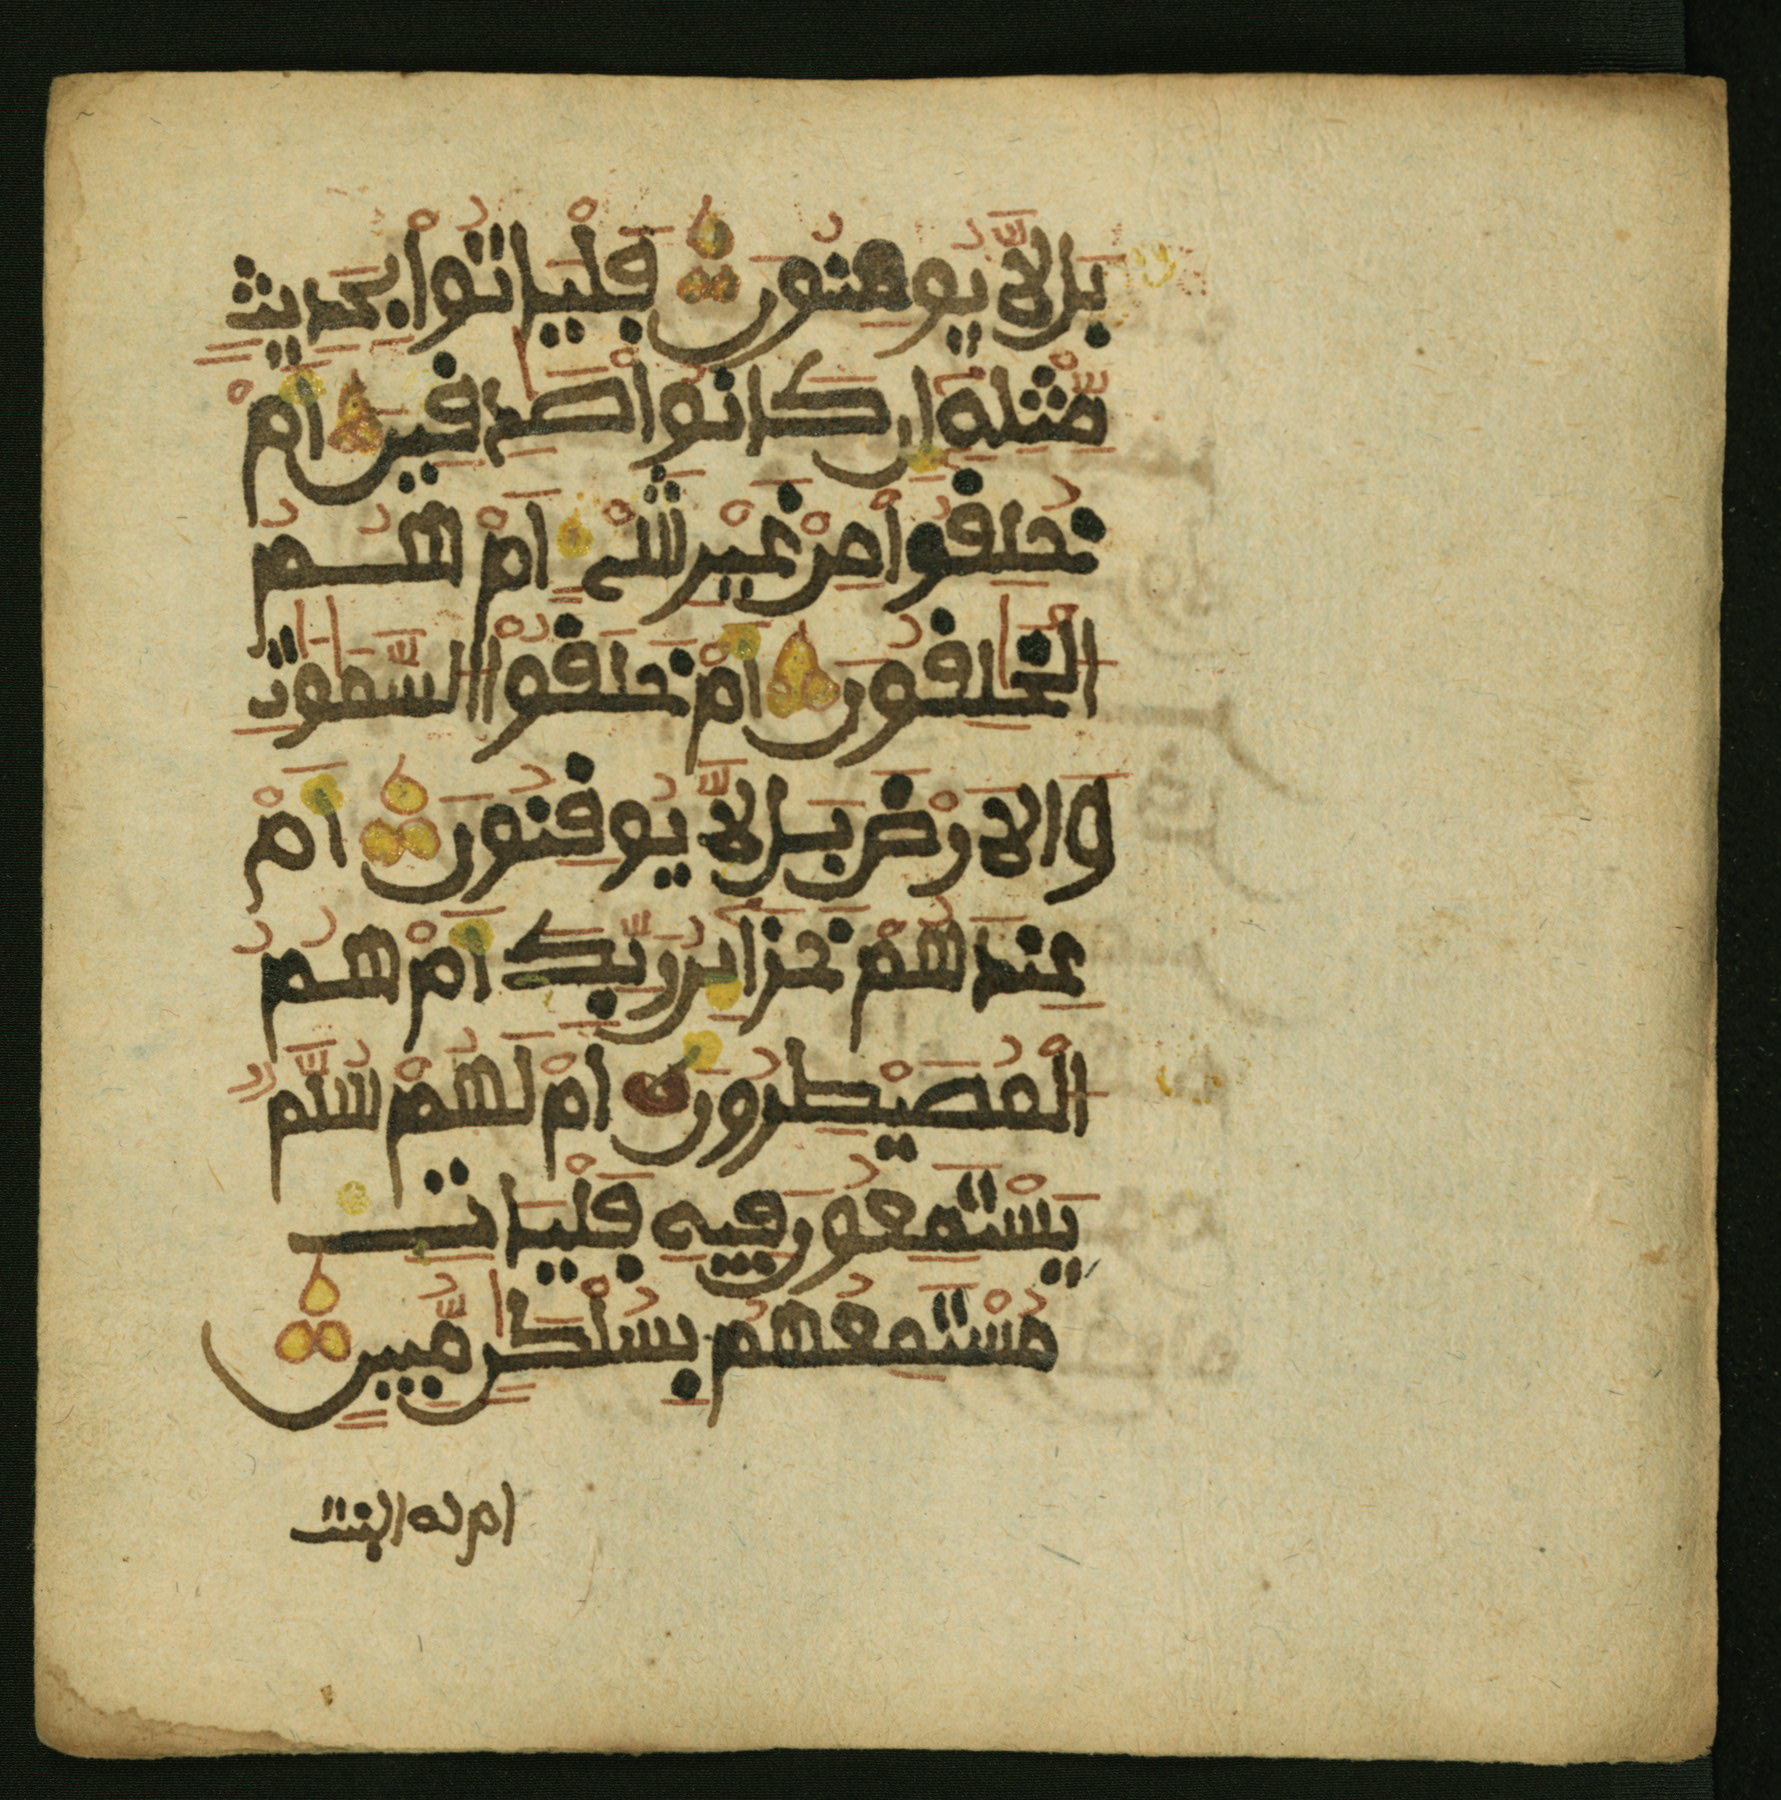 بَل لَّا يُومِنُونَ فَلْيَاتُواْ بِحَدِيثٍ
مِّثْلِهِۦ إِن كَانُواْ صَٰدِفِينَ أَمْ
خُلِفُواْ مِنْ غَيْرِ شَےْءٍ أَمْ هُمُ
الْخَٰلِفُونَ أَمْ خَلَفُواْ السَّمَٰوَٰتِ
وَالَارْضَ بَل لَّا يُوفِنُونَ أَمْ
عِندَهُمْ خَزَآئِنُ رَبِّكَ أَمْ هُمُ
الْمُصَيْطِرُونَ أَمْ لَهُمْ سُلَّمٌ
يَسْتَمِعُونَ فِيهِ فَلْيَاتِ
مُسْتَمِعُهُم بِسُلْطَٰنٍ مُّبِينٍ
ام له البنت